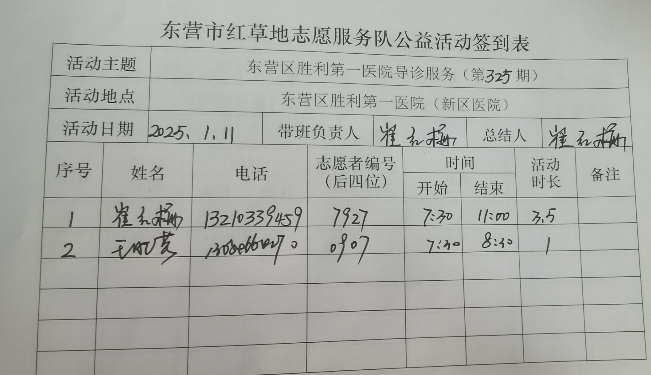 东营市红草地志愿服务队公益活动签到表
活动主题 东营区胜利第一医院导诊服务（第325期）
活动地点 东营区胜利第一医院（新区医院）
活动日期 2025.1.11 带班负责人 崔 总结人 崔
序号 姓名 电话 志愿者编号（后四位） 时间 开始 结束 活动时长 备注
1 崔 13210339459 7927 7:30 11:00 3.5
2 王 0907 7:30 8:30 1